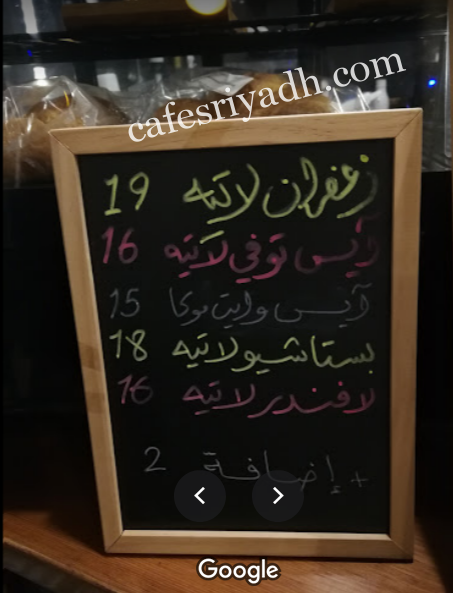 cafesriyadh.com
زعفران لاتيه 19
آيس توفي لاتيه 16
آيس وايت موكا 15
بستاشيو لاتيه 18
لافندر لاتيه 16
+ إضافة 2
Google